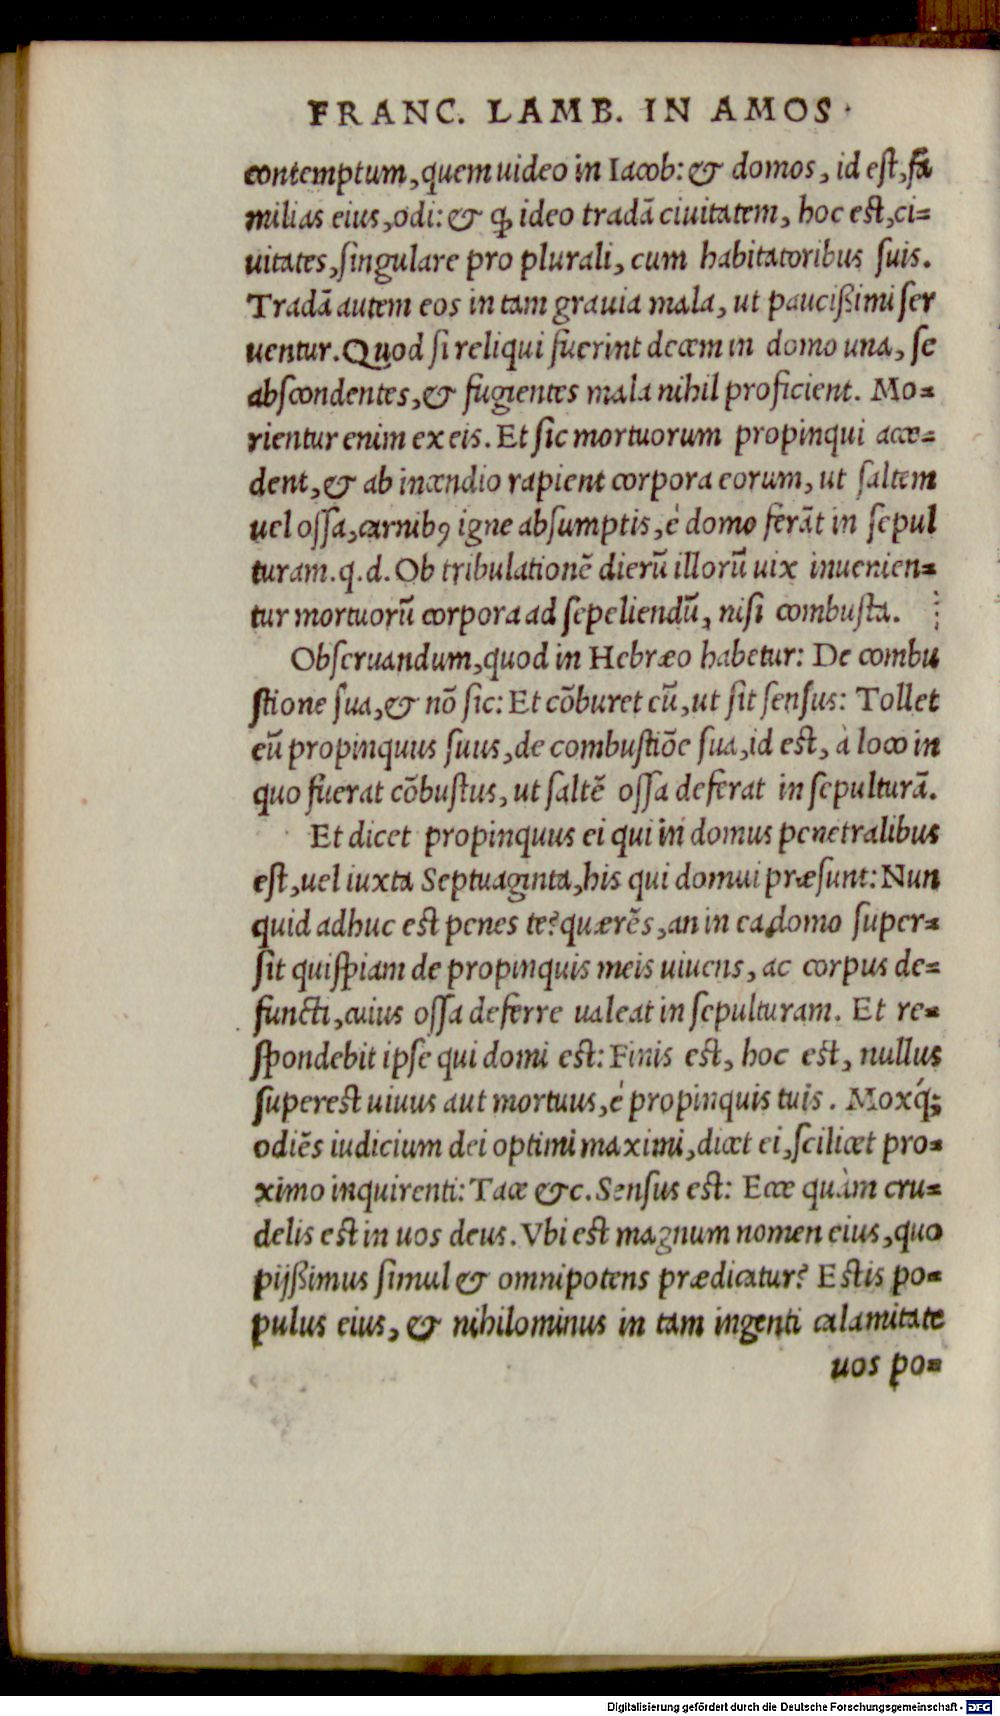 FRANC. LAMB. IN AMOS
contemptum, quem uideo in Iacob: & domos, id est, fa
milias eius, odi: & ꝙ ideo tradā ciuitatem, hoc est, ci=
uitates, singulare pro plurali, cum habitatoribus suis.
Tradā autem eos in tam grauia mala, ut paucißimi ser
uentur. Quod si reliqui fuerint decem in domo una, se
abscondentes, & fugientes mala nihil proficient. Mo=
rientur enim ex eis. Et sic mortuorum propinqui acce=
dent, & ab incendio rapient corpora eorum, ut saltem
uel ossa, carnibꝯ igne absumptis, è domo ferāt in sepul
turam. q. d. Ob tribulationē dierū illorū uix inuenien=
tur mortuorū corpora ad sepeliendū, nisi combusta.
Obseruandum, quod in Hebræo habetur: De combu
stione sua, & nō sic: Et cōburet cū, ut sit sensus: Tollet
eū propinquus suus, de combustiōe sua, id est, à loco in
quo fuerat cōbustus, ut saltē ossa deferat in sepulturā.
Et dicet propinquus ei qui in domus penetralibus
est, uel iuxta Septuaginta, his qui domui præsunt: Nun
quid adhuc est penes te? quærēs, an in ea domo super=
sit quispiam de propinquis meis uiuens, ac corpus de=
functi, cuius ossa deferre ualeat in sepulturam. Et re=
spondebit ipse qui domi est: Finis est, hoc est, nullus
superest uiuus aut mortuus, è propinquis tuis. Moxq́;
odiēs iudicium dei optimi maximi, dicet ei, scilicet pro=
ximo inquirenti: Tace &c. Sensus est: Ecce quàm cru=
delis est in uos deus. Vbi est magnum nomen eius, quo
pijßimus simul & omnipotens prædicatur? Estis po=
pulus eius, & nihilominus in tam ingenti calamitate
uos po=
Digitalisierung gefördert durch die Deutsche Forschungsgemeinschaft - DFG